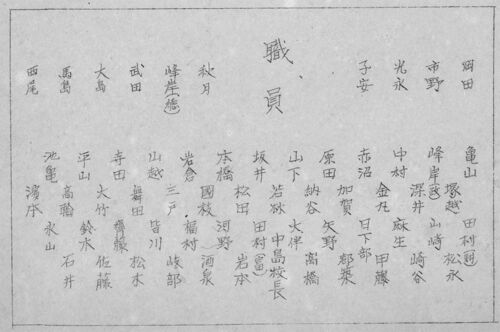 職員
岡田
市野
光永
子安
秋月
峰岸(徳)
武田
大島
馬島
西尾
亀山 田村(詞)
塚越 松永
峰岸 山崎
深井 崎谷
中村 麻生
金丸 甲藤
赤沼 日下部
加賀 郡
原田 矢野
納谷 高橋
山下 大伴
若林 中島校長
坂井 田村(富)
松田 岩本
本橋 河野
國枝 酒泉
岩倉 福村
三戸 岐部
山越 皆川
舞田 松木
寺田 齋藤
大竹 佐藤
平山 鈴木
高 石井
池亀 永山
濱本